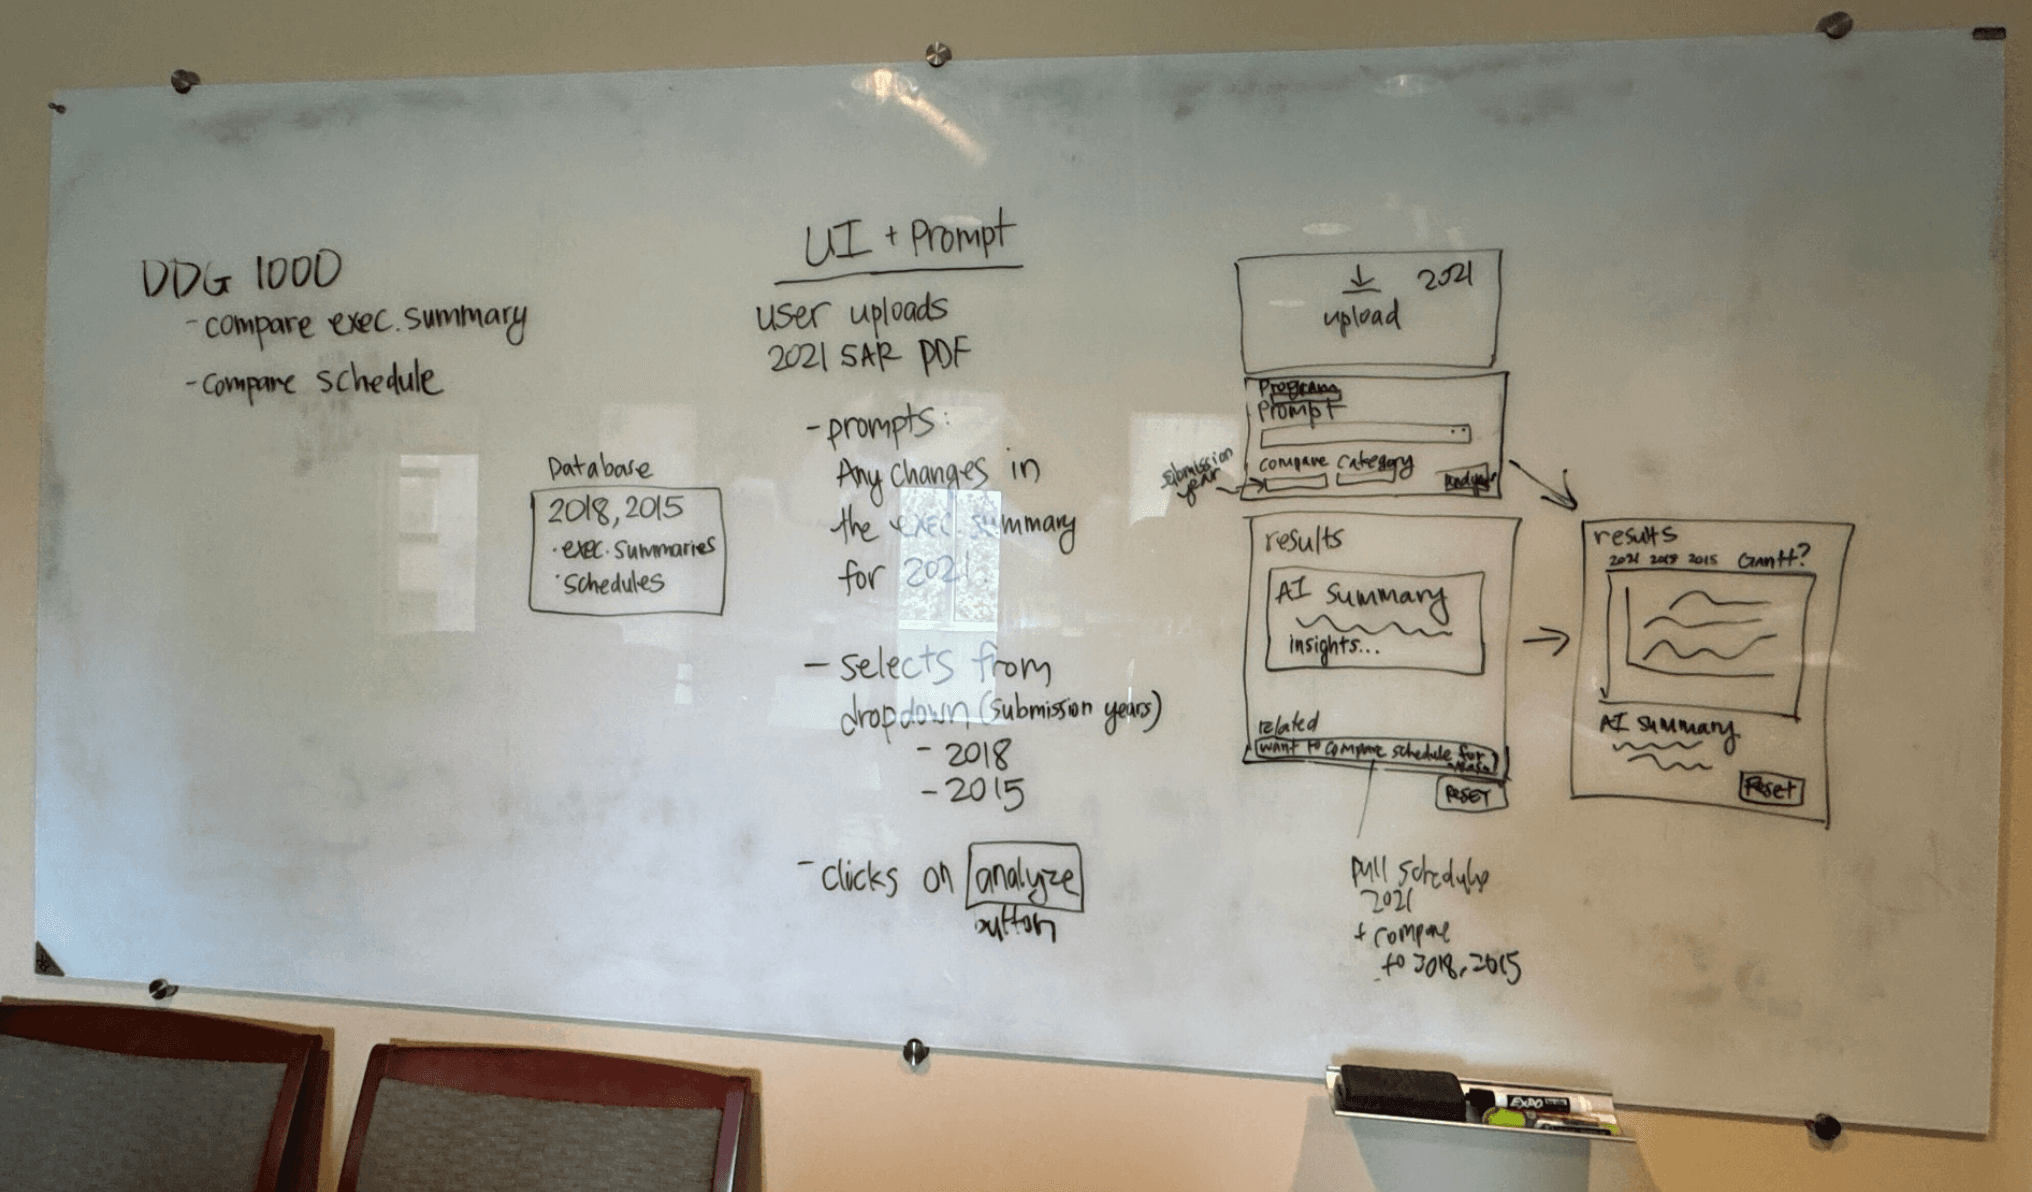 DDG 1000
- compare exec. summary
- compare schedule
Database
2018, 2015
· exec. summaries
· schedules
UI + Prompt
user uploads
2021 SAR PDF
- prompts:
Any changes in
the exec summary
for 2021.
- selects from
dropdown (submission years)
- 2018
- 2015
- clicks on analyze
button
2021
upload
Program
Prompt
compare category
submission
year
Analyze
results
AI summary
insights...
related
want to compare schedule for
RESET
pull schedules
2021
+ compare
to 2018, 2015
results
2021 2018 2015 Gantt?
AI summary
Reset
EXPO